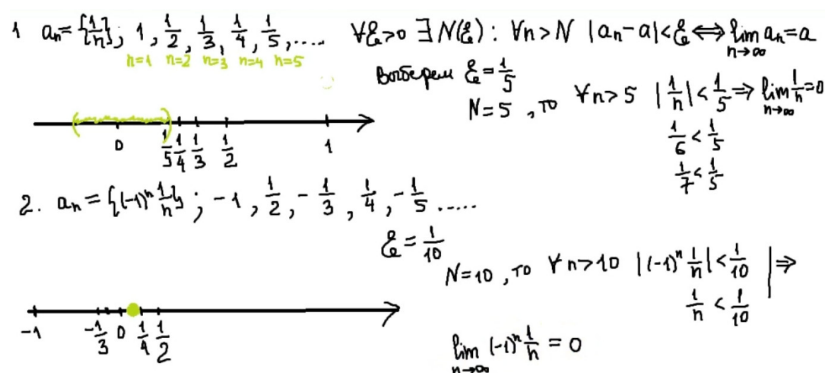 1 aₙ = {1/n}; 1, 1/2, 1/3, 1/4, 1/5, .... ∀ℰ>0 ∃N(ℰ): ∀n>N |aₙ-a|<ℰ ⟺ lim n→∞ aₙ=a
n=1 n=2 n=3 n=4 n=5
Выберем ℰ=1/5
N=5, то ∀n>5 |1/n|<1/5 ⇒ lim n→∞ 1/n=0
1/6<1/5
1/7<1/5
0 1/5 1/4 1/3 1/2 1
2. aₙ = {(-1)ⁿ 1/n}; -1, 1/2, -1/3, 1/4, -1/5 .....
ℰ=1/10
N=10, то ∀n>10 |(-1)ⁿ 1/n|<1/10 | ⇒
1/n < 1/10
-1 -1/3 0 1/4 1/2
lim n→∞ (-1)ⁿ 1/n = 0